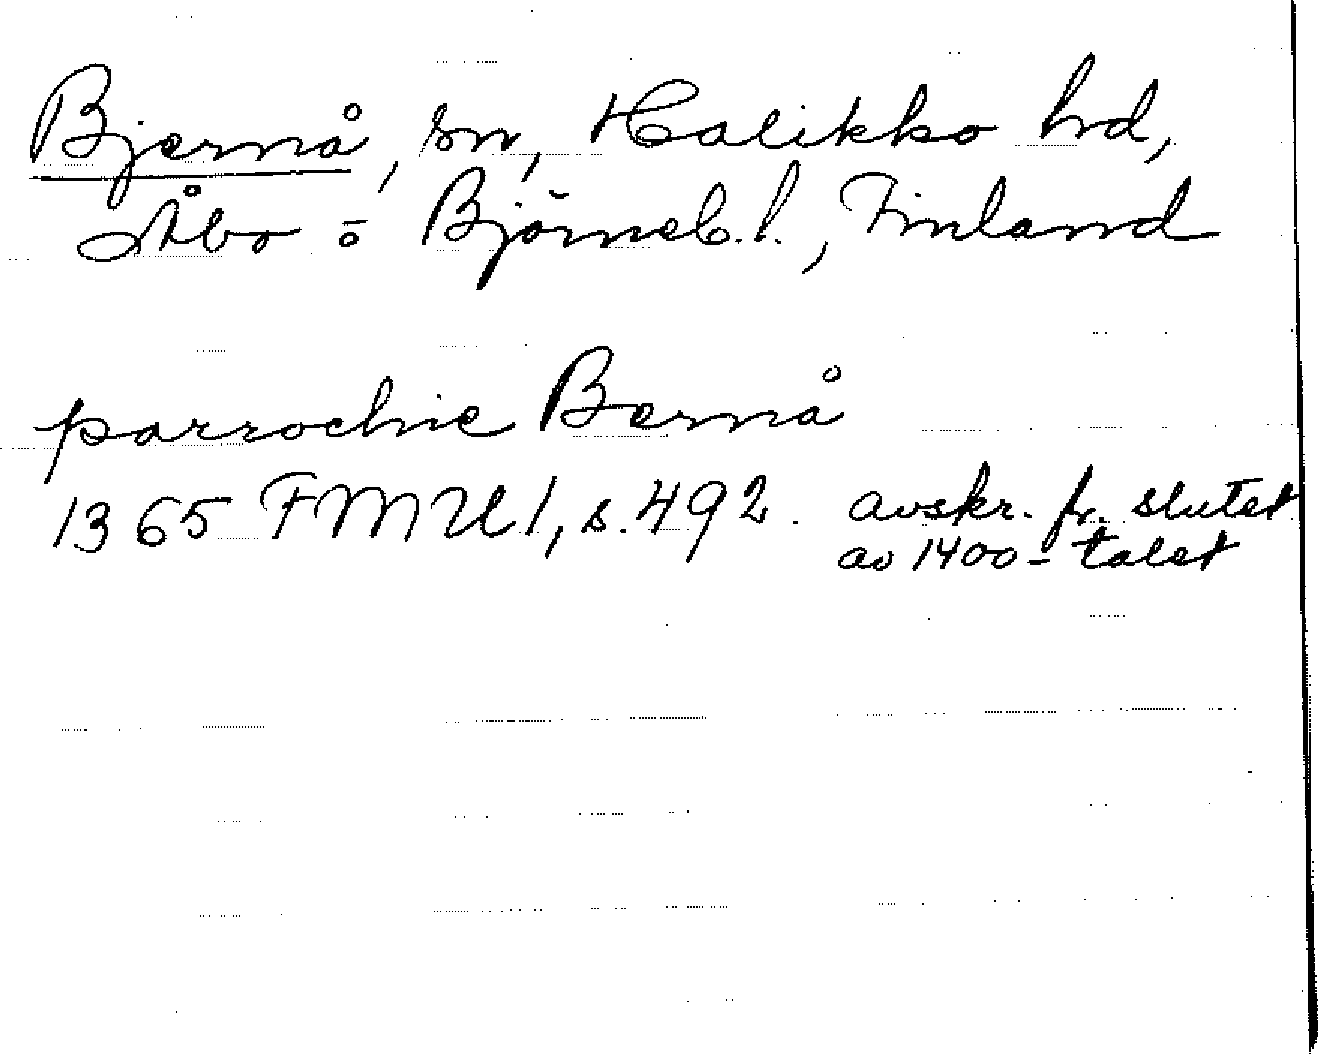 Bjernå, sn, Halikko hd,
Åbo o Björneb. l., Finland
parrochie Bernå
1365 FMU I, s. 492. avskr. fr. slutet
av 1400-talet